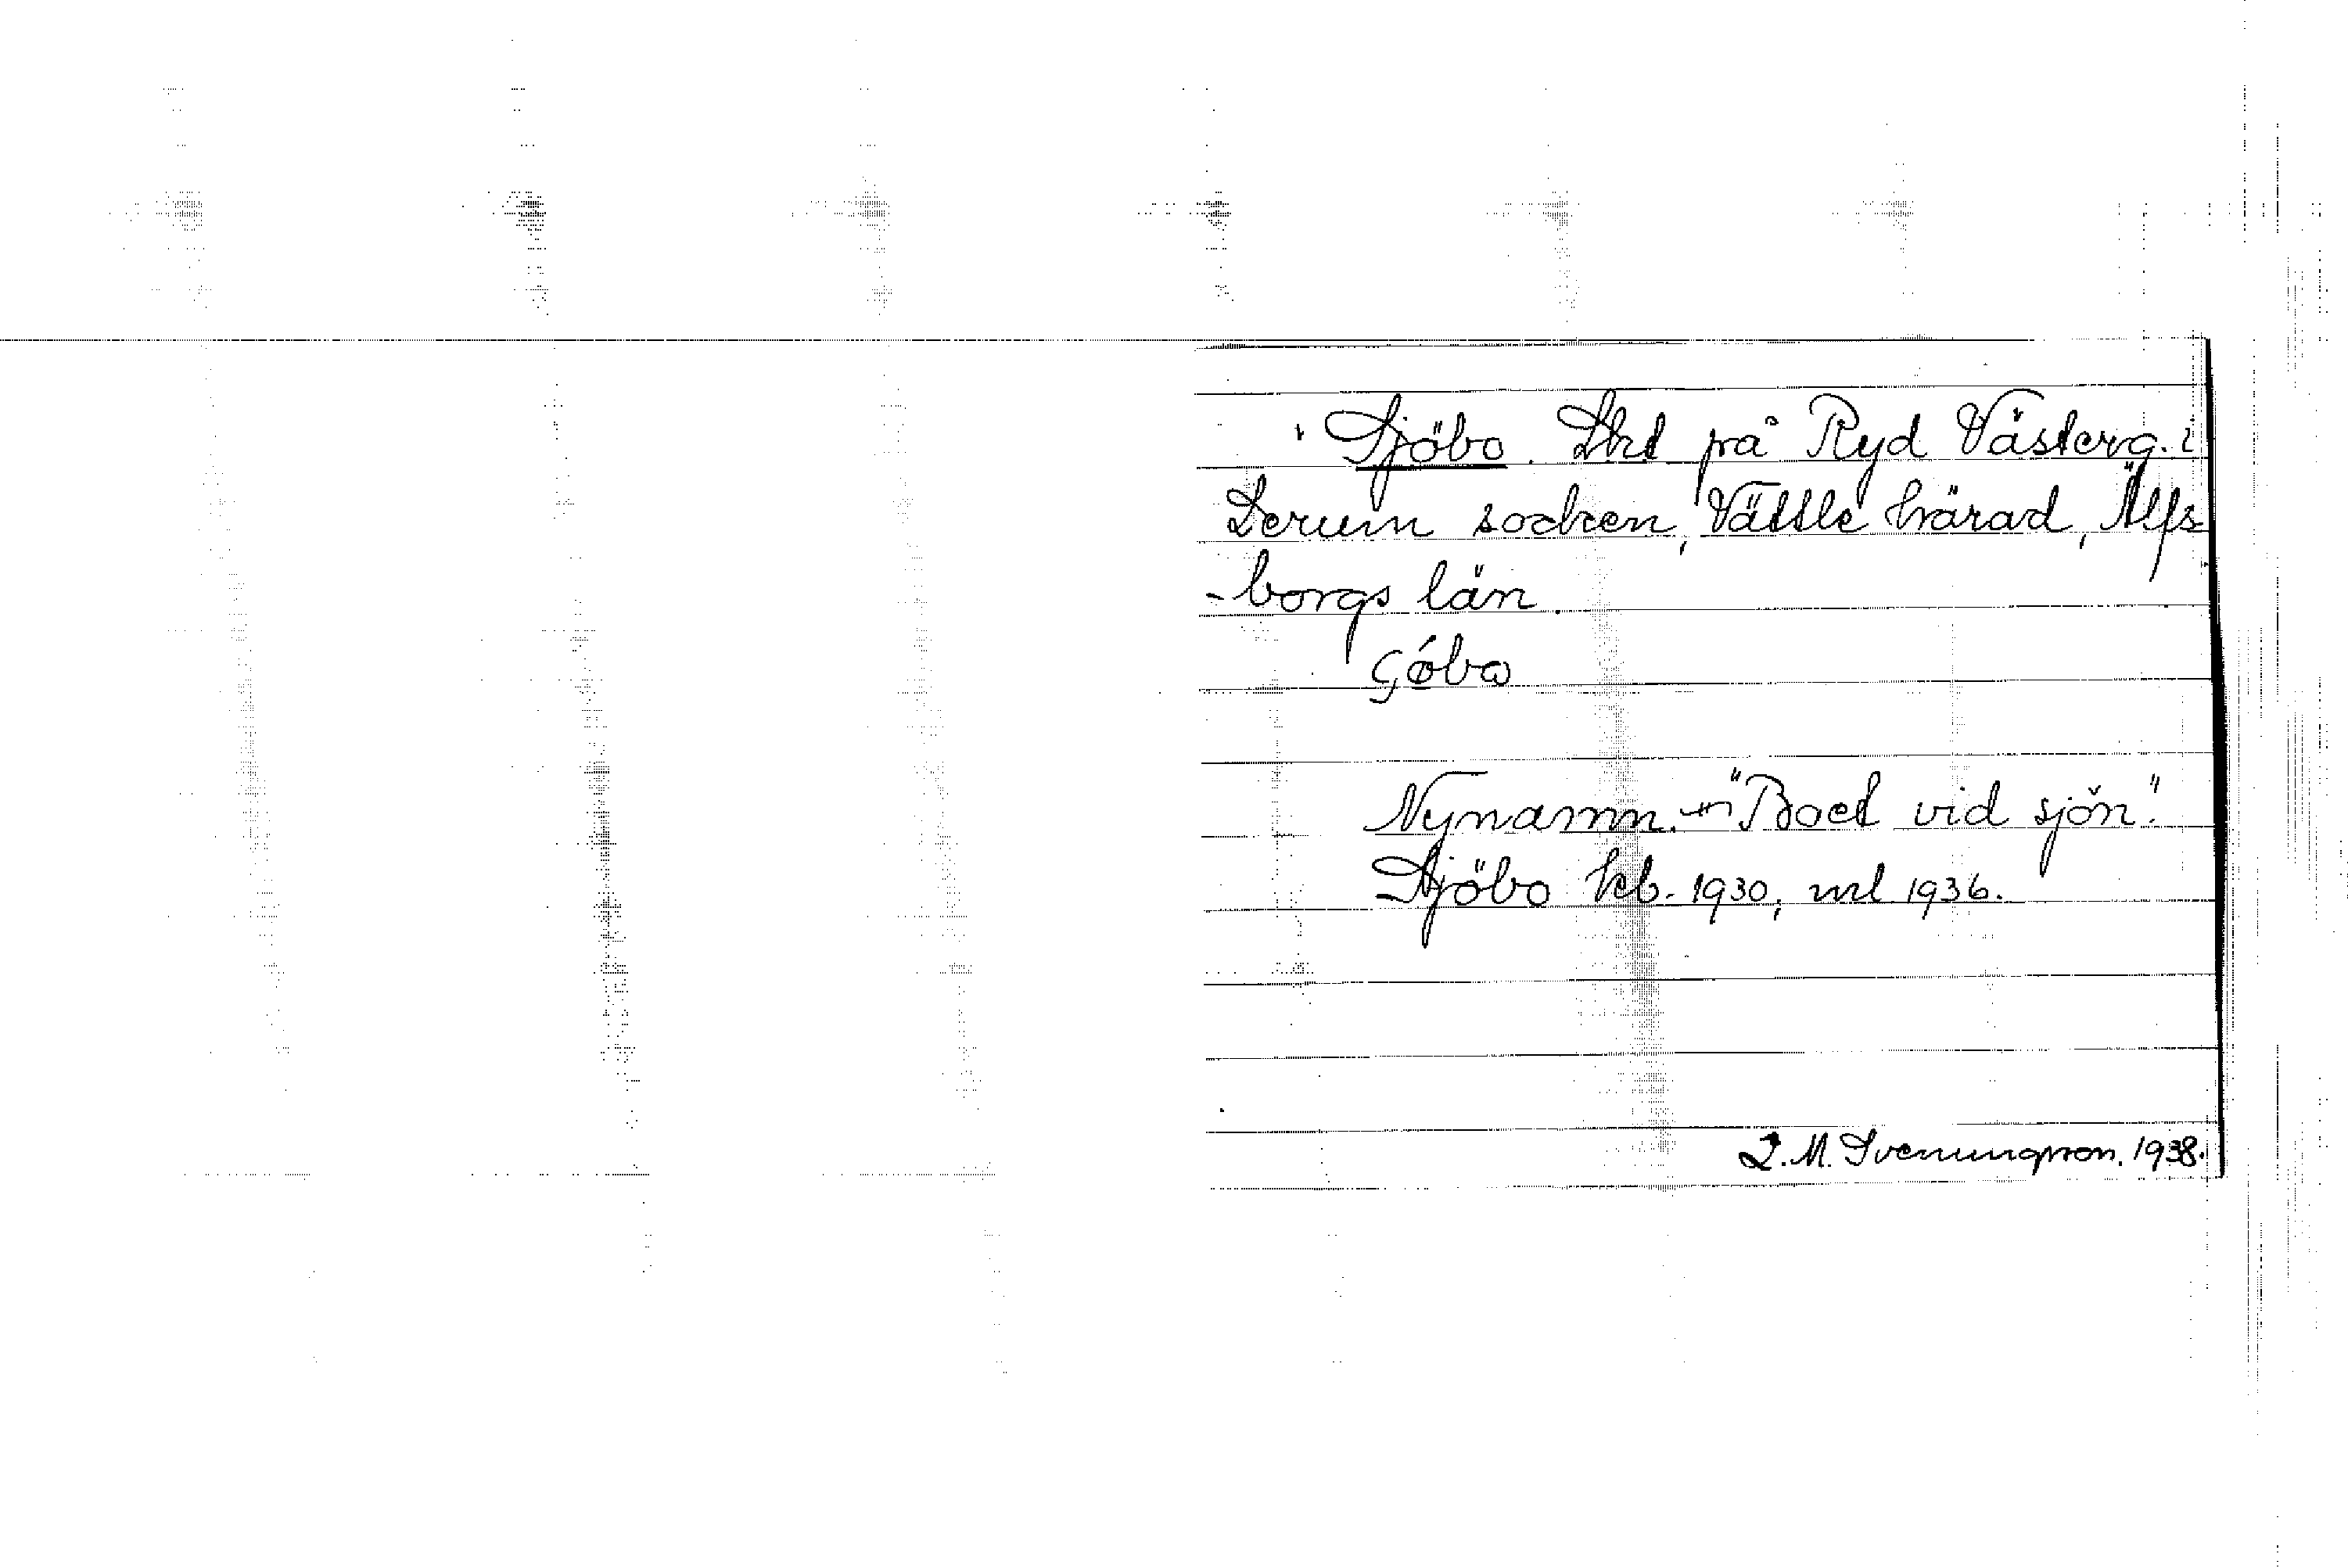 Sjöbo. Lht på Ryd Västerg. i
Lerum socken, Vättle härad, Älfs
-borgs län.
Nynamn. "Boet vid sjön".
Sjöbo kb. 1930, ml 1936.
L. M. Svenungsson. 1938.